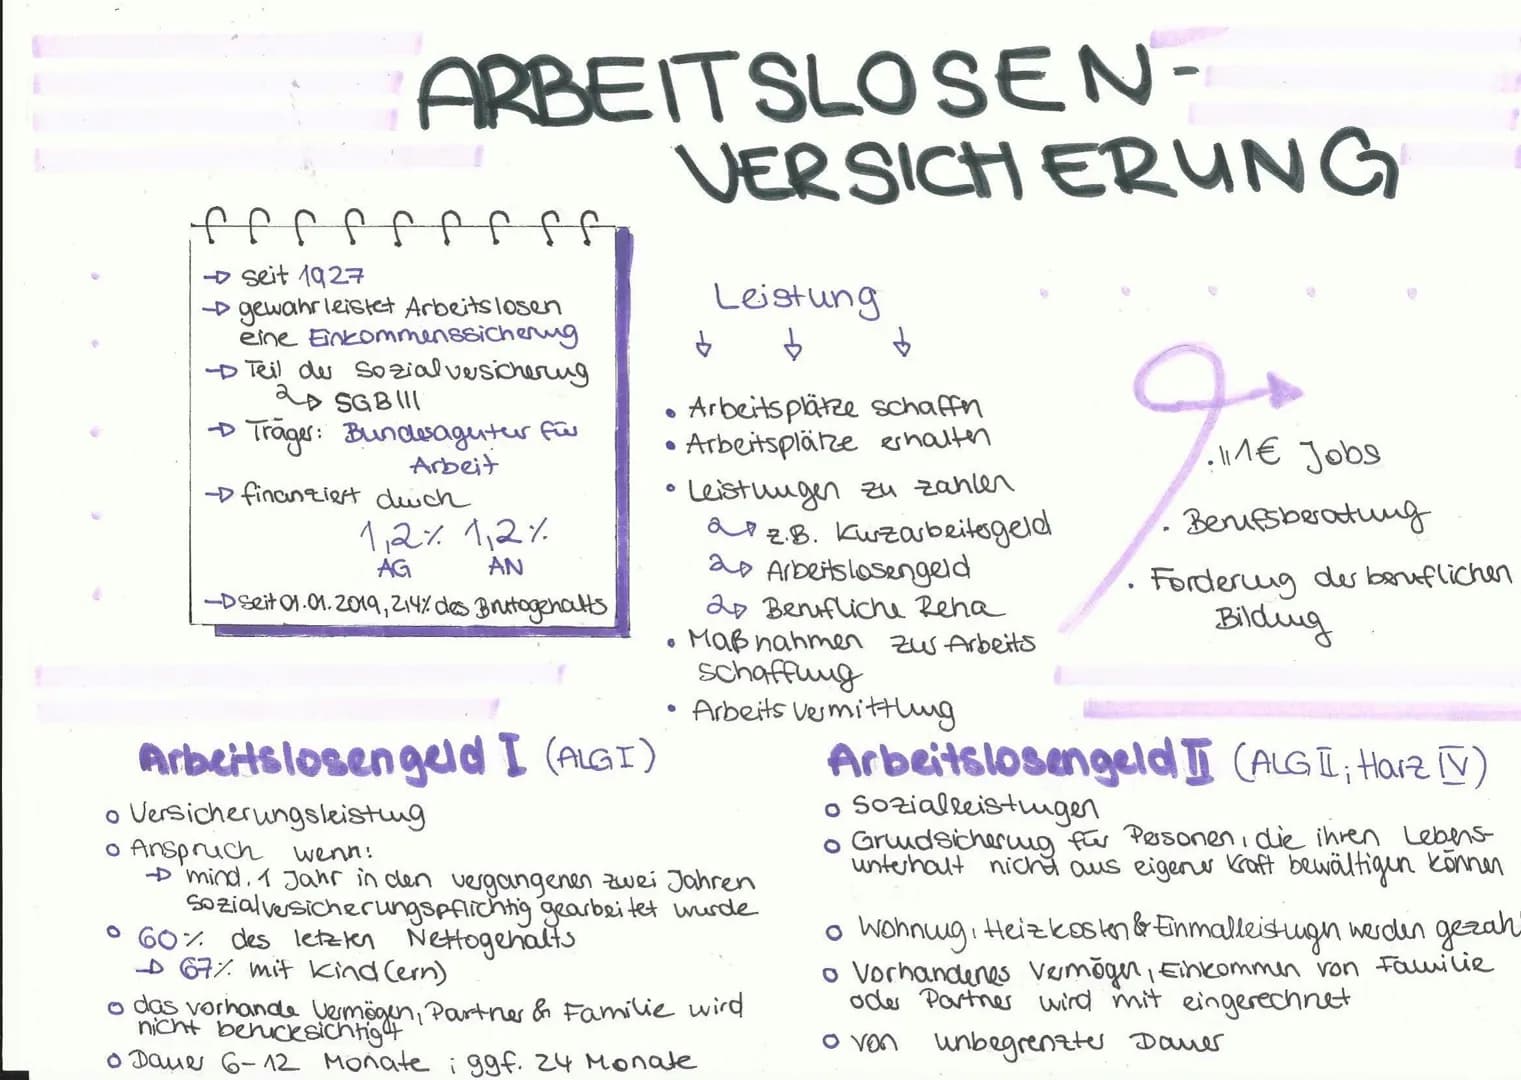 ARBEITSLOSEN-
VERSICHERUNG
→ seit 1927
→ gewährleistet Arbeitslosen
eine Einkommenssicherung
→ Teil der Sozialversicherung
↳ SGB III
→ Träger: Bundesagutur für
Arbeit
→ finanziert durch
1,2% 1,2%
AG AN
→ Seit 01.01.2019, 2,4% des Brutogehalts
Leistung
↓ ↓ ↓
• Arbeitsplätze schaffn
• Arbeitsplätze erhalten
• Leistungen zu zahlen
↳ z.B. Kurzarbeitsgeld
↳ Arbeitslosengeld
↳ Berufliche Reha
• Maßnahmen zur Arbeits
schaffung
• Arbeitsvermittlung
. 1€ Jobs
. Berufsberatung
. Förderung der beruflichen
Bildung
Arbeitslosengeld I (ALG I)
o Versicherungsleistung
o Anspruch wenn:
→ mind. 1 Jahr in den vergangenen zwei Jahren
sozialversicherungspflichtig gearbeitet wurde
o 60% des letzten Nettogehalts
→ 67% mit Kind(ern)
o das vorhande Vermögen, Partner & Familie wird
nicht berücksichtigt
o Dauer 6-12 Monate ; ggf. 24 Monate
Arbeitslosengeld II (ALG II; Harz IV)
o Sozialleistungen
o Grundsicherung für Personen, die ihren Lebens-
unterhalt nicht aus eigener Kraft bewältigen können
o Wohnung, Heizkosten & Einmalleistugn werden gezah
o Vorhandenes Vermögen, Einkommen von Familie
oder Partner wird mit eingerechnet
o von unbegrenzter Dauer